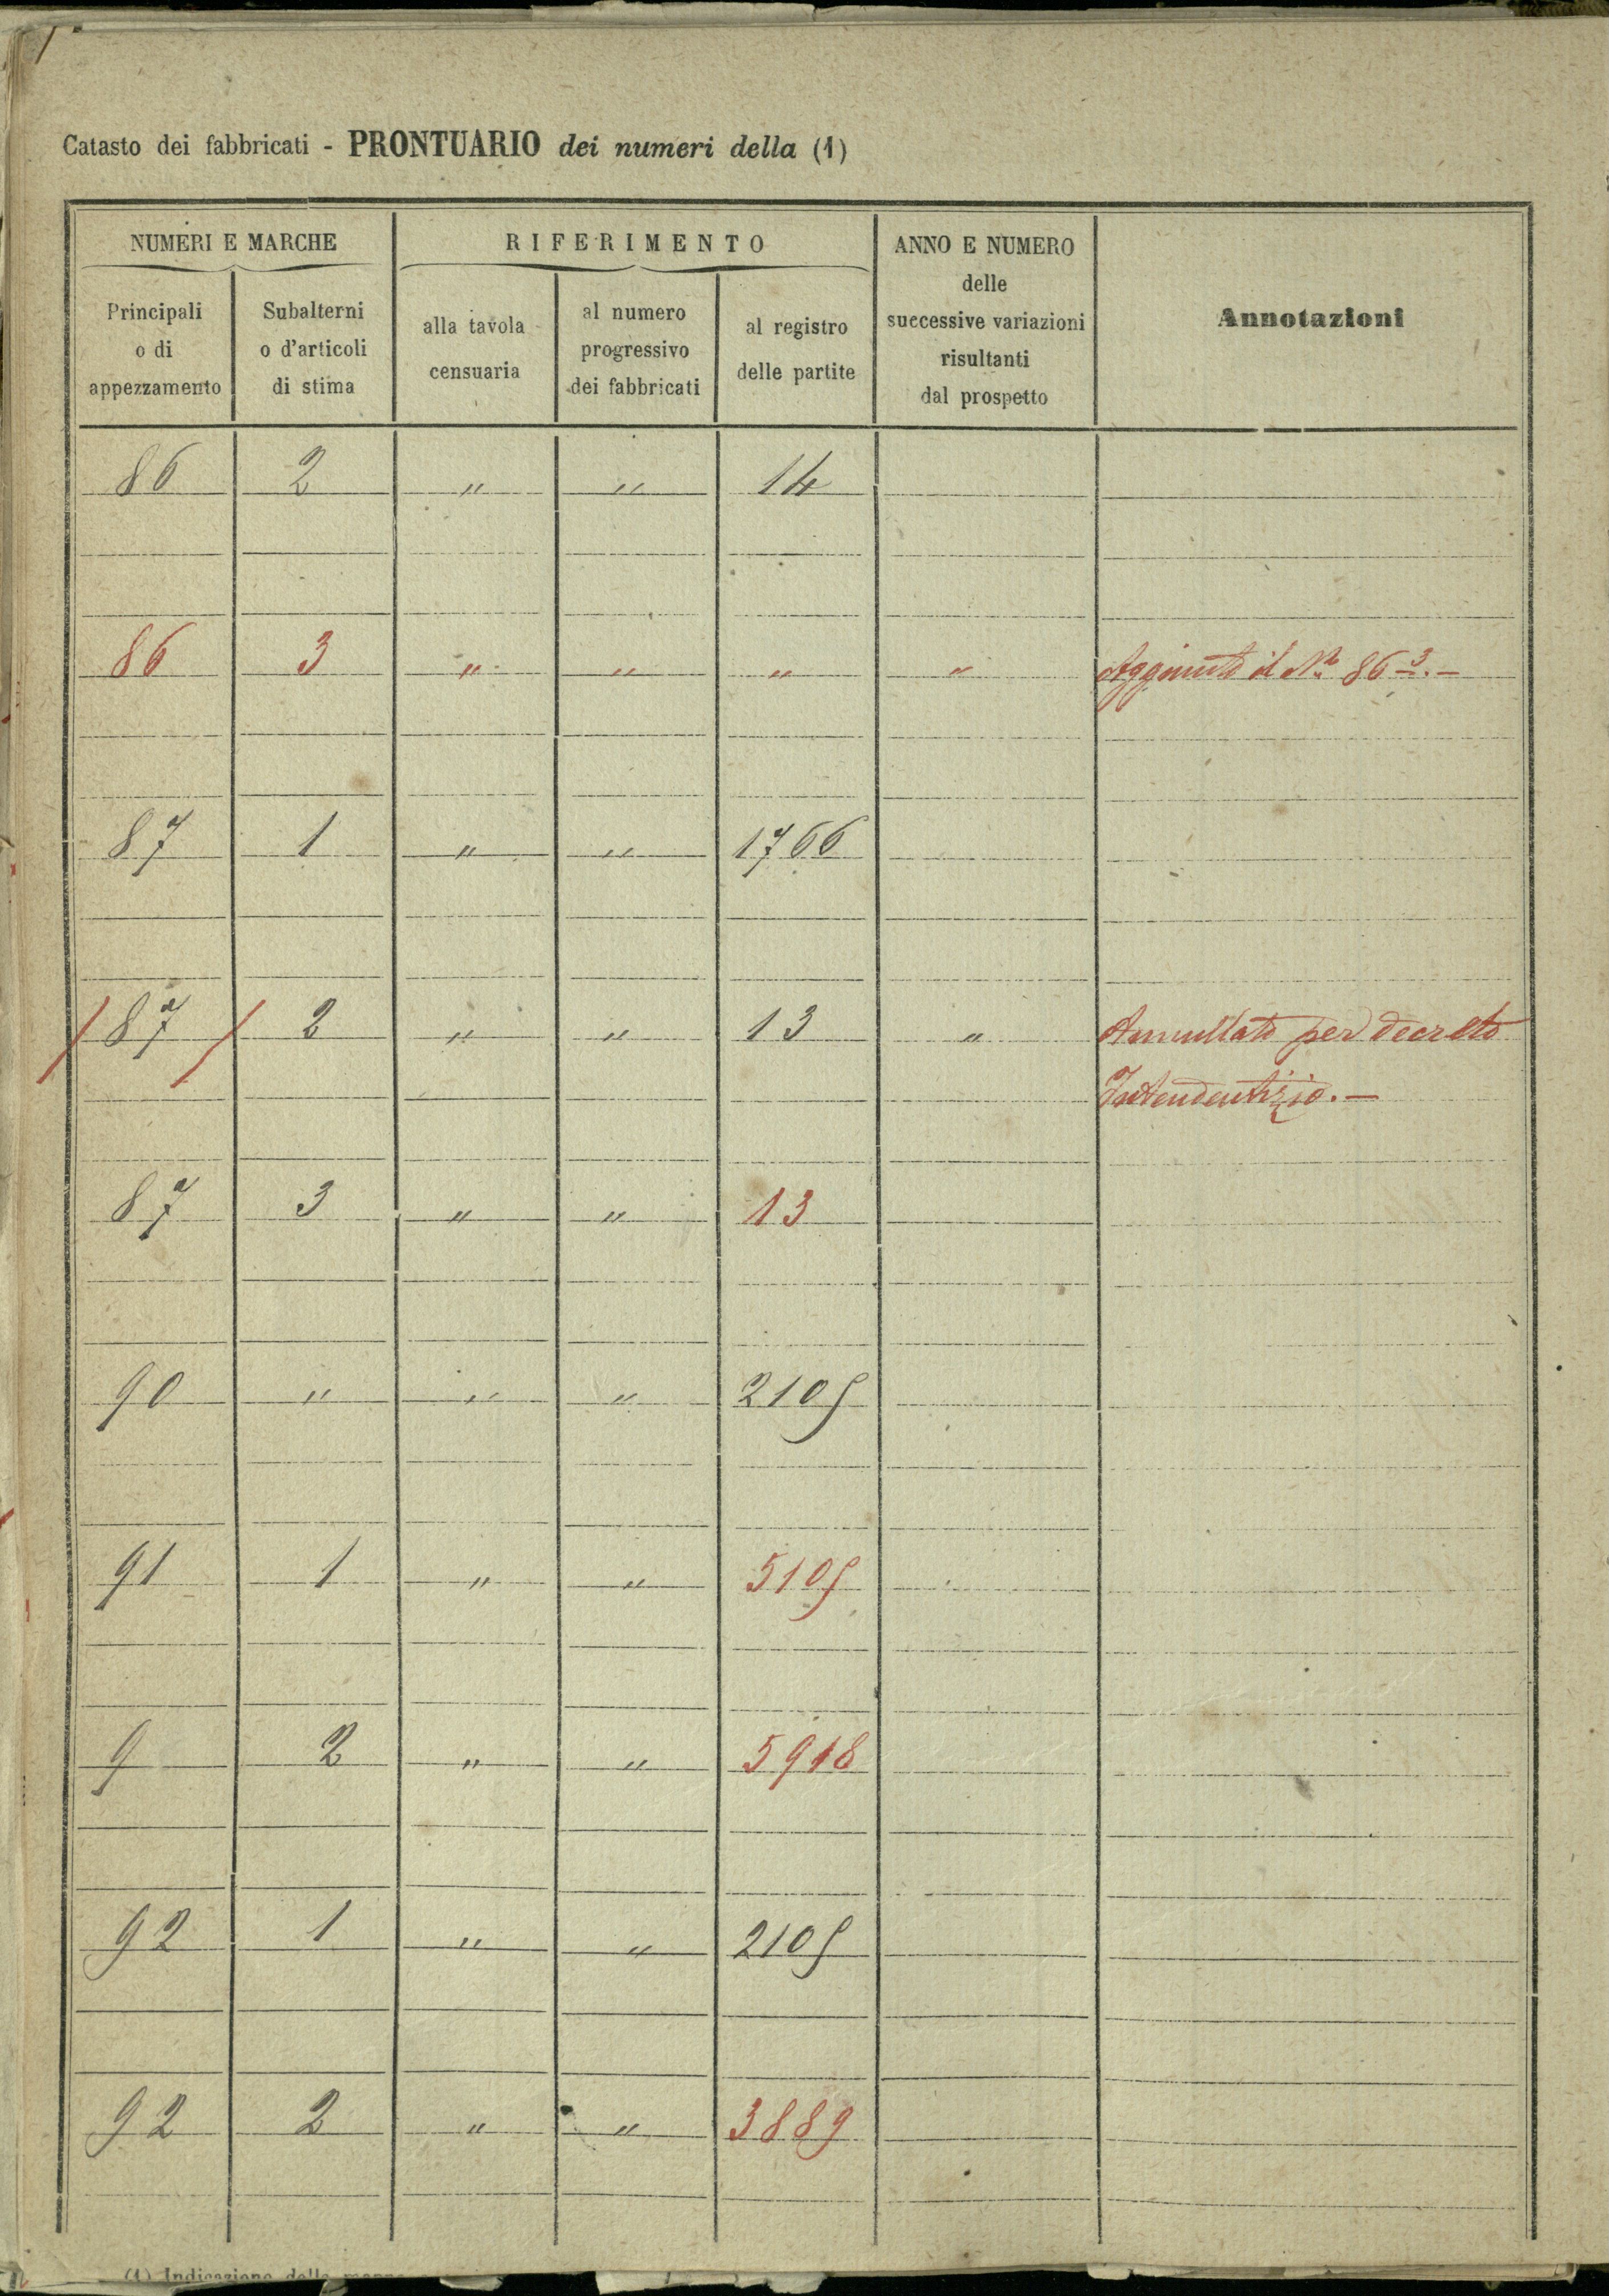 Catasto dei fabbricati - PRONTUARIO dei numeri della (1)
NUMERI E MARCHE
RIFERIMENTO
ANNO E NUMERO
delle
successive variazioni
risultanti
dal prospetto
Annotazioni
Principali
o di
appezzamento
Subalterni
o d'articoli
di stima
alla tavola
censuaria
al numero
progressivo
dei fabbricati
al registro
delle partite
86 2 " " 14
86 3 " " " " Aggiunto il N.° 86 3. —
87 1 " " 1766
87 2 " " 13 " Annullato per decreto
Intendentizio. —
87 3 " " 13
90 " " " 2105
91 1 " " 5105
9 2 " " 5918
92 1 " " 2105
92 2 " " 3889
(1) Indicazione della